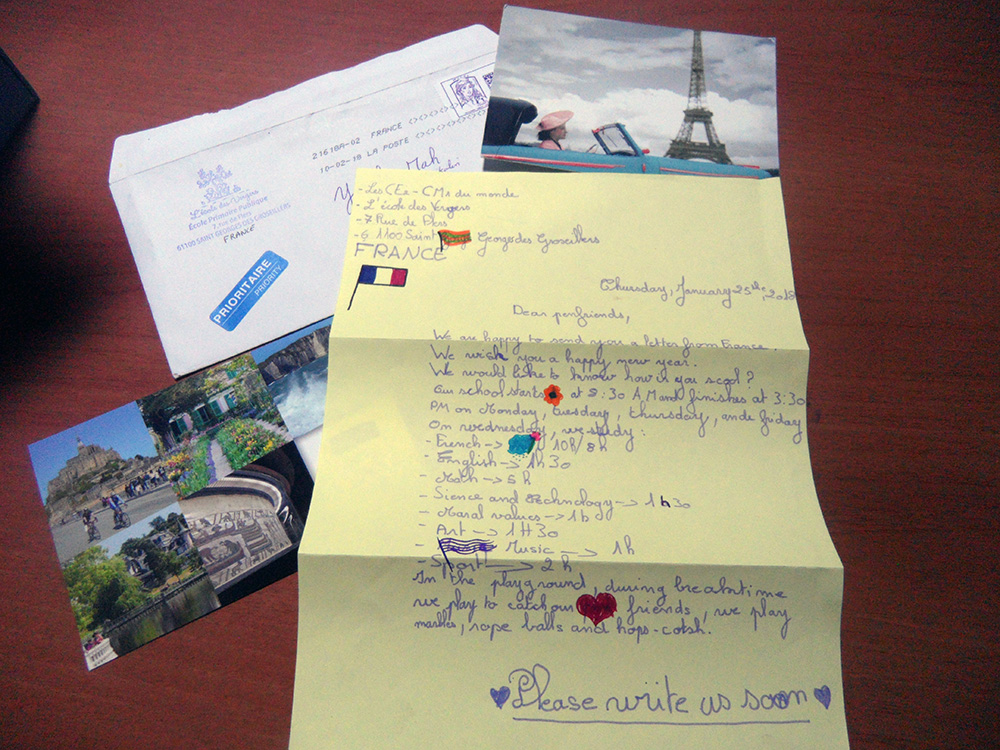 21618A-02 FRANCE
10-02-18 LA POSTE
Mah
L'école des Vergers
École Primaire Publique
7, rue de Flers
61100 SAINT GEORGES DES GROSEILLERS
FRANCE
PRIORITAIRE
PRIORITY
- Les CE2-CM1 du monde
- L'école des Vergers
- 7 Rue de Flers
- 6 1100 Saint Georges des Groseillers
FRANCE
Thursday, January 25th, 2018
Dear penfriends,
We are happy to send you a letter from France.
We wish you a happy new year.
We would like to know how is you scool?
Our school starts at 8:30 AM and finishes at 3:30
PM on Monday, tuesday, thursday, ande friday
On wednesday, we study:
- French -> 10h/8h
- English -> 1h30
- Math -> 5h
- Sience and technology -> 1h30
- Moral values -> 1h
- Art -> 1H30
- Music -> 1h
- Sport -> 2h
In the playground, during breaktime
we play to catch our friends, we play
marbles, rope balls and hops-cotsh.
Please write us soon